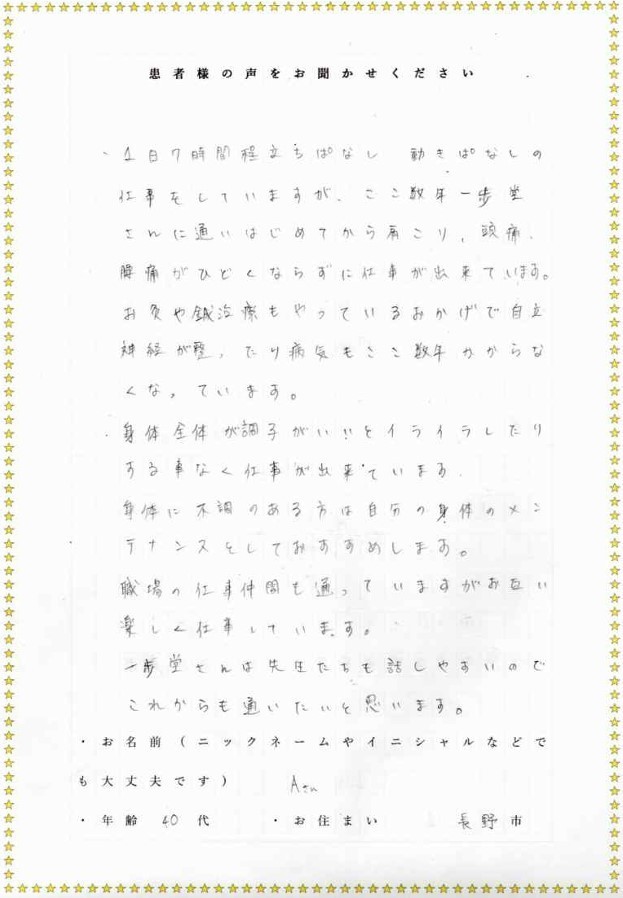 患者様の声をお聞かせください
・1日7時間程立ちぱなし 動きぱなしの
仕事をしていますが、ここ数年一歩堂
さんに通いはじめてから肩こり、頭痛、
腰痛がひどくならずに仕事が出来ています。
お灸や鍼治療もやっているおかげで自立
神経が整ったり病気もここ数年かからな
くなっています。
・身体全体が調子がいいとイライラしたり
する事なく仕事が出来ています.
身体に不調のある方は自分の身体のメン
テナンスをしておすすめします。
職場の仕事仲間も通っていますがお互い
楽しく仕事しています。
一歩堂さんは先生たちも話しやすいので
これからも通いたいと思います。
・お名前(ニックネームやイニシャルなどで
も大丈夫です) Aさん
・年齢 40代 ・お住まい 長野市